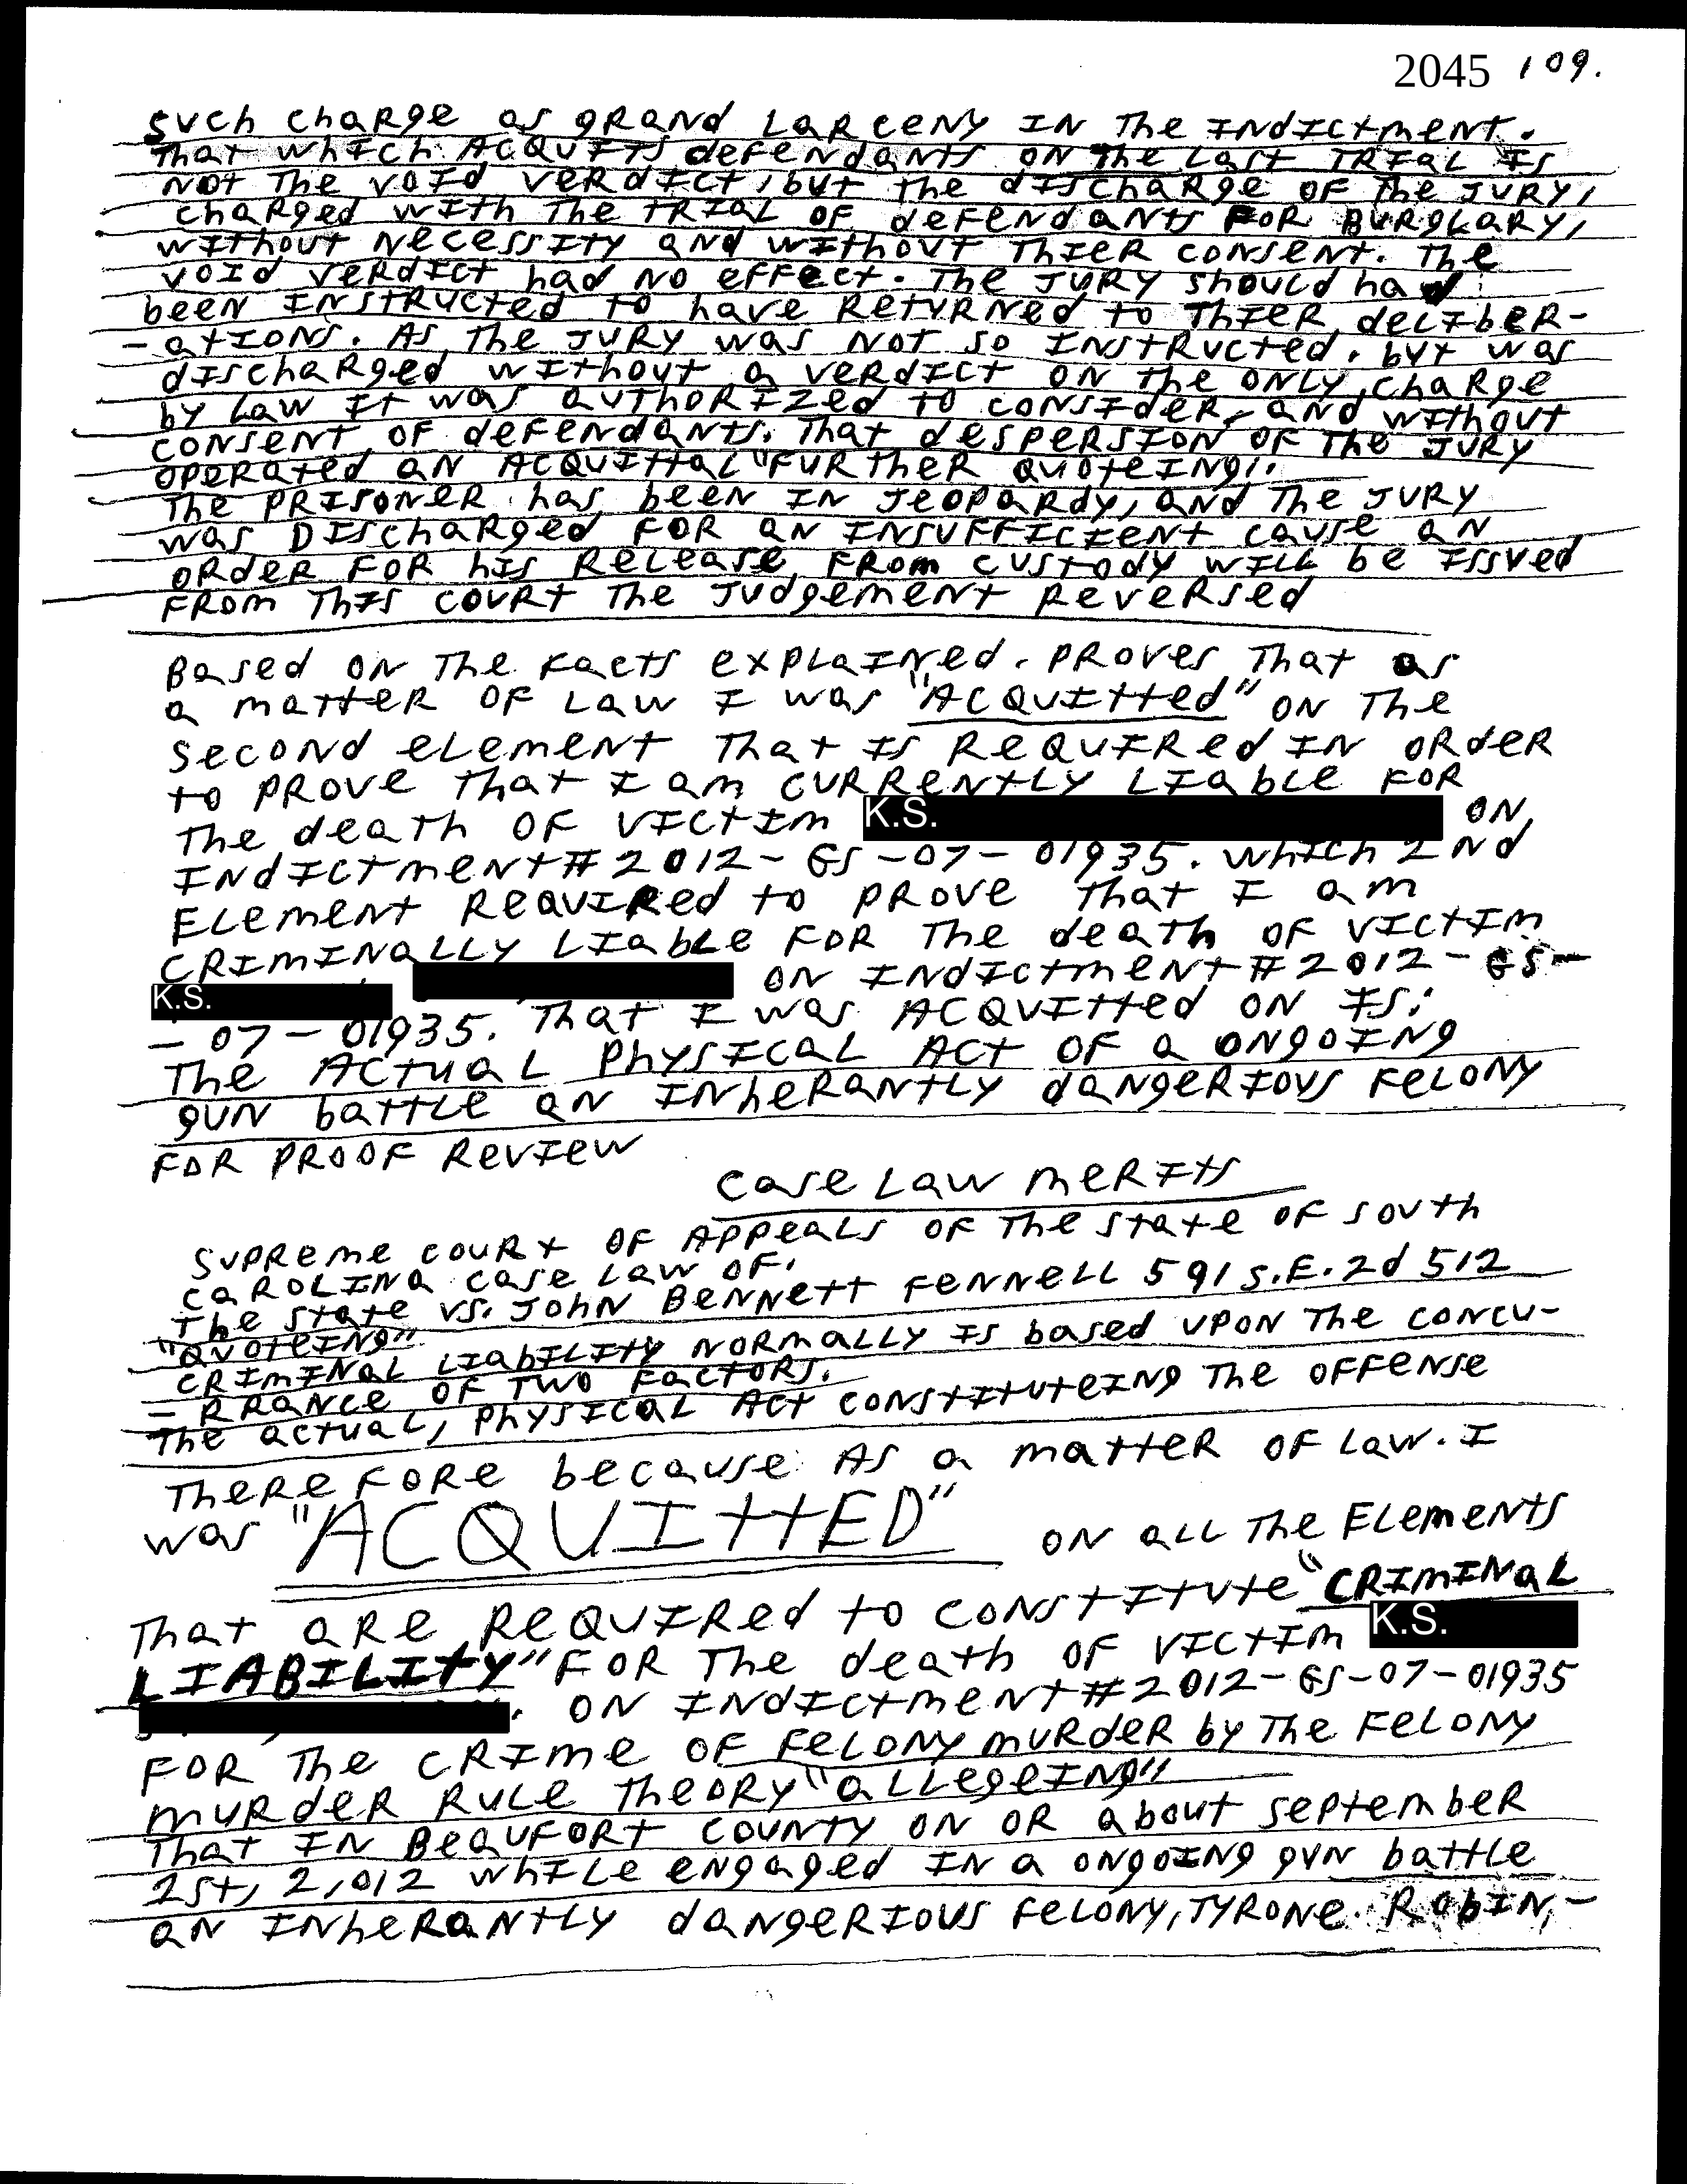 2045 109.
such charge as grand larceny in the indictment.
that which acquits defendants on the last trial is
not the void verdict, but the discharge of the jury,
charged with the trial of defendants for burglary,
without necessity and without thier consent. the
void verdict had no effect. the jury should had
been instructed to have returned to thier deliber-
-ations. As the jury was not so instructed. but was
discharged without a verdict on the only charge
by law it was authorized to consider, and without
consent of defendants. that despersion of the jury
operated an acquittal "further quoteing".
the prisoner has been in jeopardy, and the jury
was discharged for an insufficient cause an
order for his release from custody will be issued
from this court the judgement reversed
Based on the facts explained. proves that as
a matter of law I was "Acquitted" on the
second element that is required in order
to prove that I am currently liable for
the death of victim K.S. on
indictment# 2012-GS-07-01935. which 2nd
Element required to prove that I am
criminally liable for the death of victim
K.S. on indictment# 2012-GS-
-07-01935. that I was acquitted on is:
the Actual physical act of a ongoing
gun battle an inherantly dangerious felony
for proof review
case law merits
supreme court of Appeals of the state of south
carolina case law of,
the state vs. John Bennett Fennell 591 S.E.2d 512
"quoteing"
criminal liability normally is based upon the concu-
-rrance of two factors.
the actual, physical act constituteing the offense
therefore because As a matter of law. I
was "ACQUITTED" on all the Elements
that are required to constitute "CRIMINAL
LIABILITY" for the death of victim K.S.
. on indictment# 2012-GS-07-01935
for the crime of felony murder by the felony
murder rule theory "allegeing"
that in Beaufort county on or about september
1st, 2,012 while engaged in a ongoing gun battle
an inherantly dangerious felony, Tyrone. Robin,-